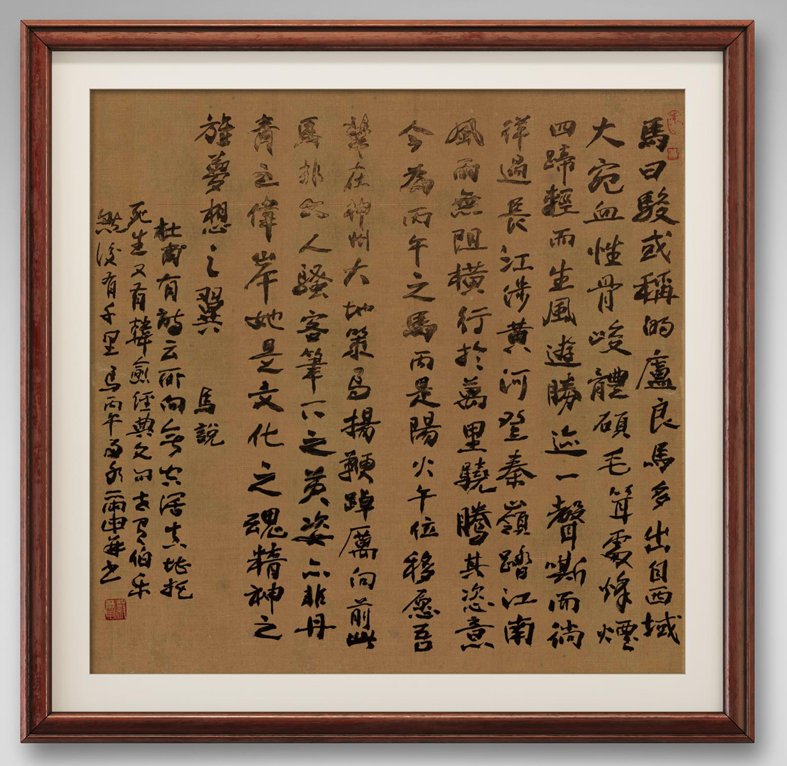 馬曰駿或稱的盧良馬多出自西域
大宛血性骨峻體碩毛聳雯烽煙
四蹄輕而生風遊勝迹一聲嘶而徜
徉過長江涉黃河登秦嶺踏江南
風雨無阻橫行於萬里驍騰其恣意
今為丙午之馬丙是陽火午位移愿吾
輩在神州大地策馬揚鞭踔厲向前此
馬非人騷客筆下之英姿亦非丹
青之偉岸她是文化之魂精神之
旌夢想之翼 馬說
杜甫有詩云所向無空闊真堪托
死生又有韓愈經典文曰世有伯乐
然後有千里馬丙午